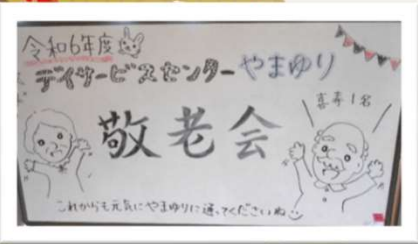 令和6年度
デイサービスセンターやまゆり
敬老会
喜寿1名
これからも元気にやまゆりに通ってくださいね